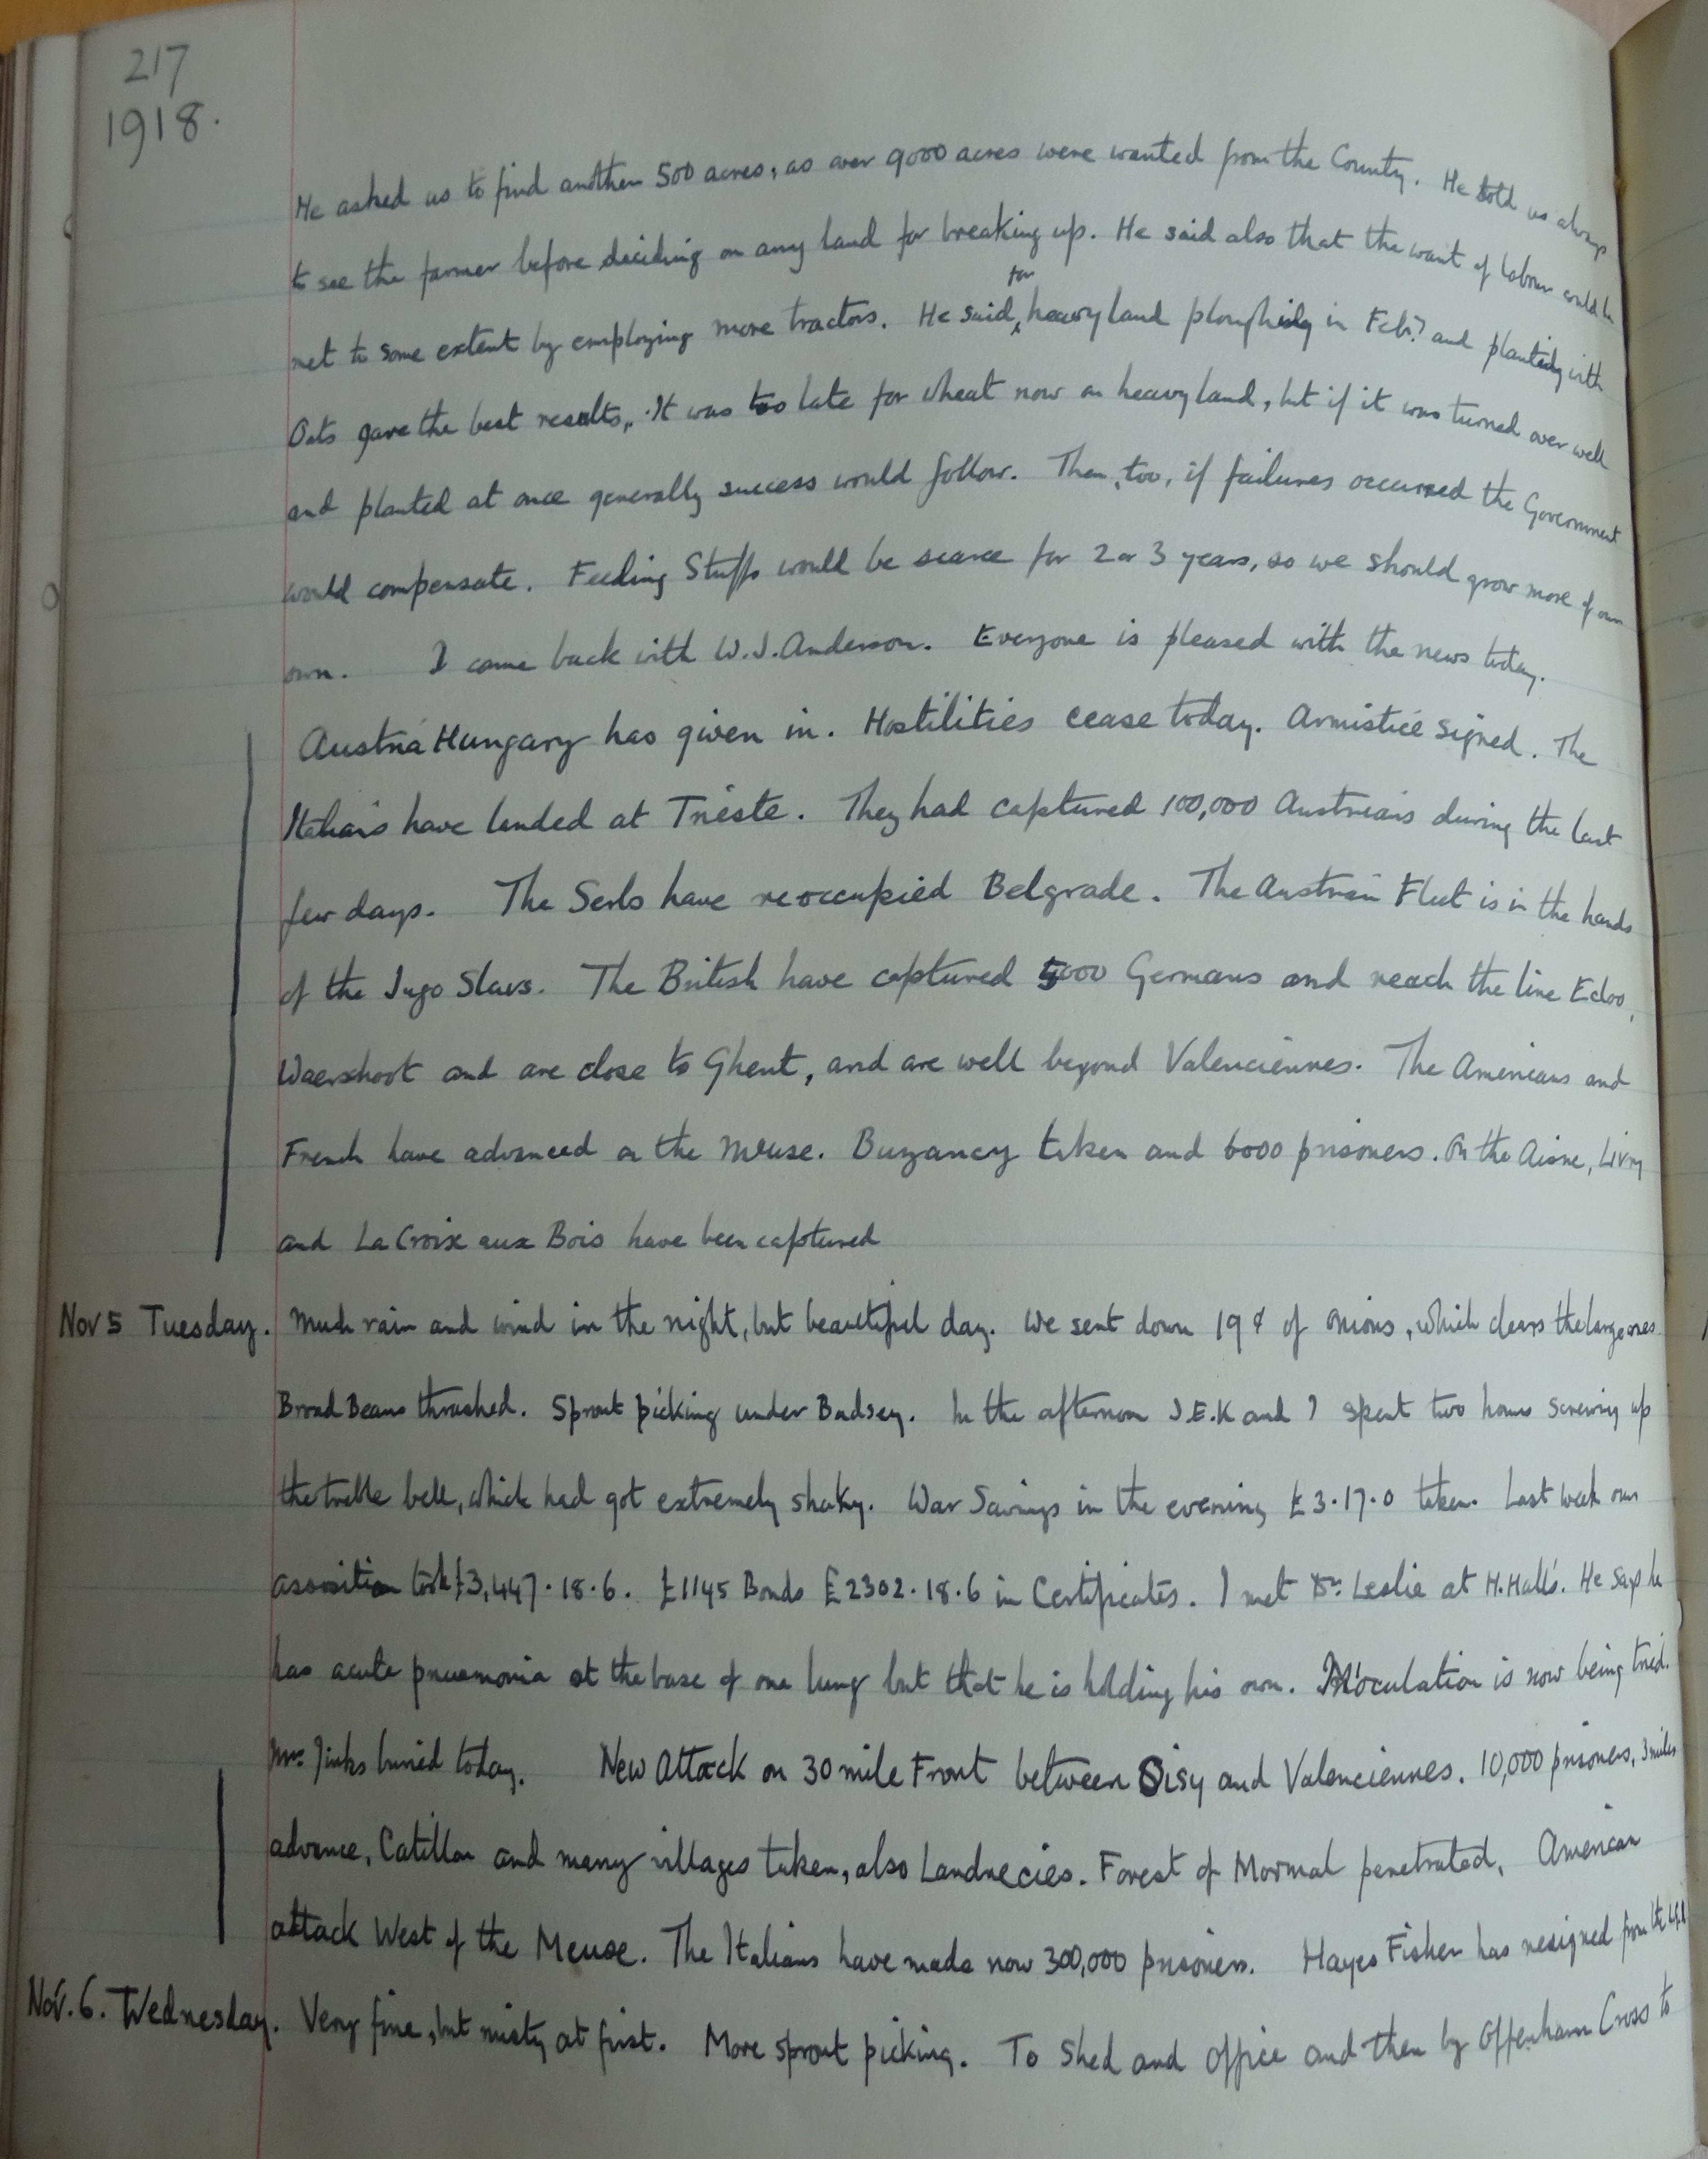 217
1918.
He asked us to find another 500 acres, as over 9000 acres were wanted from the County. He told us always
to see the farmer before deciding on any land for breaking up. He said also that the want of labour could be
met to some extent by employing more tractors. He said for heavy land ploughing in Feby and planting with
Oats gave the best results. It was too late for wheat now on heavy land, but if it was turned over well
and planted at once generally success would follow. Then, too, if failures occurred the Government
would compensate. Feeding Stuffs would be scarce for 2 or 3 years, so we should grow more of our
own. I came back with W.J. Anderson. Everyone is pleased with the news today.
Austria Hungary has given in. Hostilities cease today. Armistice signed. The
Italians have landed at Trieste. They had captured 100,000 Austrians during the last
few days. The Serbs have reoccupied Belgrade. The Austrian Fleet is in the hands
of the Jugo Slavs. The British have captured 5000 Germans and reach the line Ecloo,
Waerschoot and are close to Ghent, and are well beyond Valenciennes. The Americans and
French have advanced on the Meuse. Buzancy taken and 6000 prisoners. On the Aisne, Livry
and La Croix aux Bois have been captured
Nov 5 Tuesday. Much rain and wind in the night, but beautiful day. We sent down 19 of onions, which clears the large ones
Broad Beans thrashed. Sprout picking under Badsey. In the afternoon J.E.K and I spent two hours screwing up
the treble bell, which had got extremely shaky. War Savings in the evening £3.17.0 taken. Last week our
association took £3,447.18.6. £1145 Bonds £2302.18.6 in Certificates. I met Dr. Leslie at H. Hall's. He says he
has acute pneumonia at the base of one lung but that he is holding his own. Inoculation is now being tried.
Mrs. Jinks buried today. New Attack on 30 mile Front between Oisy and Valenciennes. 10,000 prisoners, 3 miles
advance, Catillon and many villages taken, also Landrecies. Forest of Mormal penetrated, American
attack West of the Meuse. The Italians have made now 300,000 prisoners. Hayes Fisher has resigned from the
Nov. 6. Wednesday. Very fine, but misty at first. More sprout picking. To Shed and office and then by Offenham Cross to